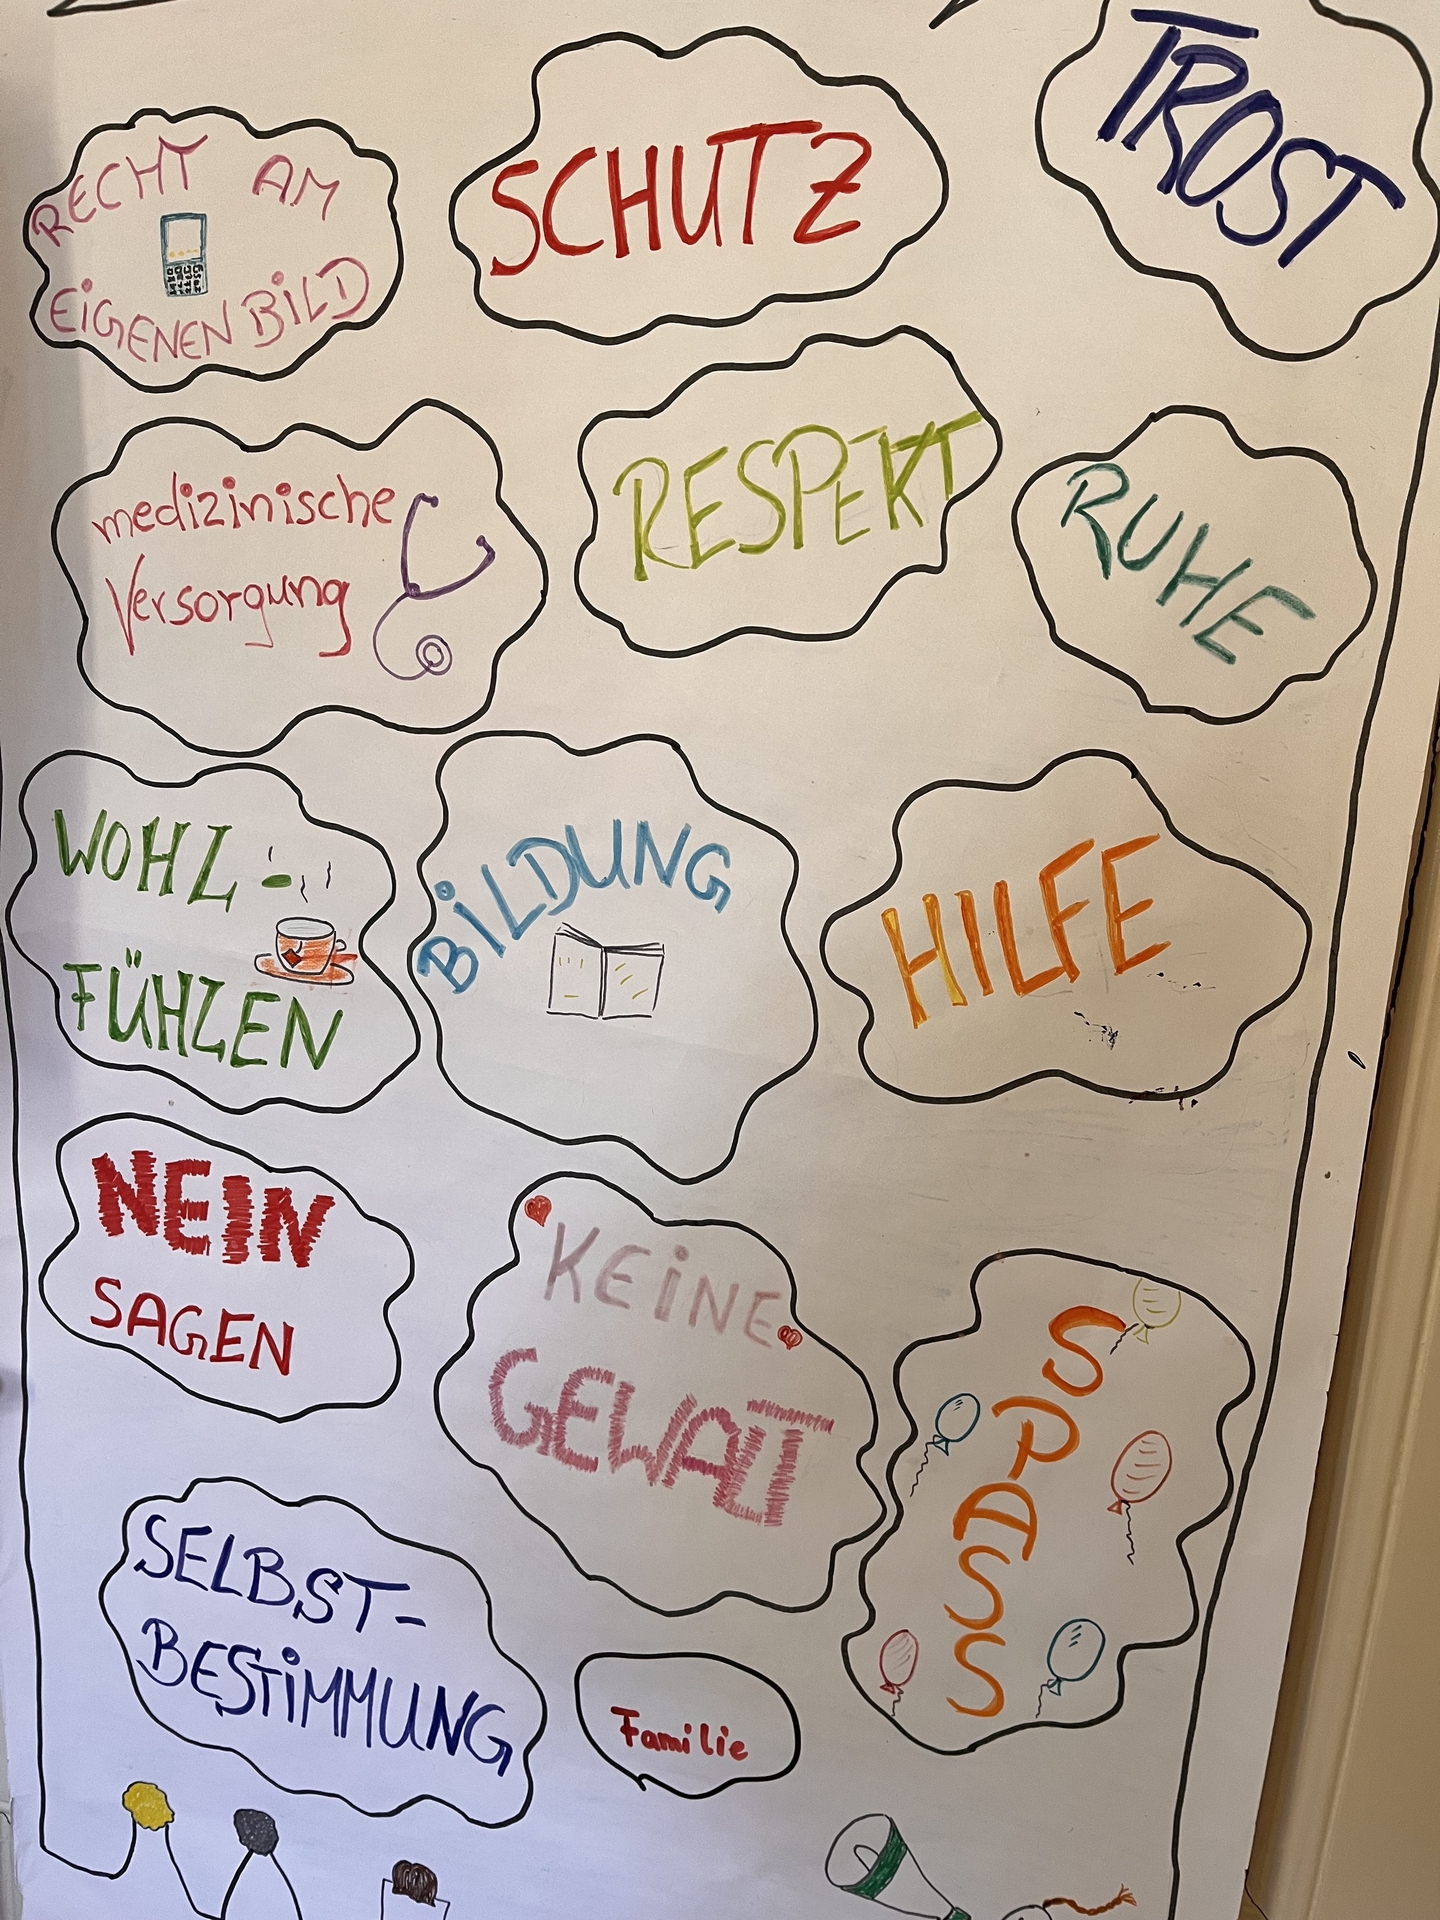 RECHT AM
EIGENEN BILD
SCHUTZ
TROST
medizinische
Versorgung
RESPEKT
RUHE
WOHL-
FÜHLEN
BILDUNG
HILFE
NEIN
SAGEN
KEINE
GEWALT
SPASS
SELBST-
BESTIMMUNG
Familie